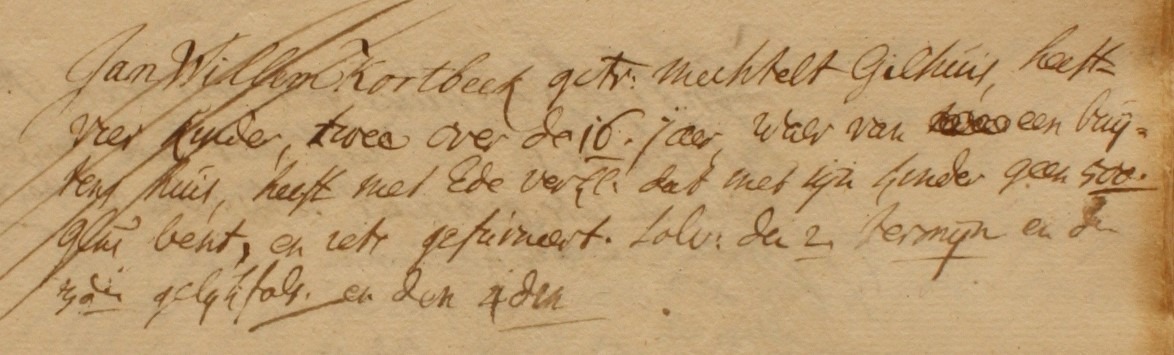 Jan Willem Kortbeek getr: Mechtelt Gilhuis, heeft
vier kinder, twee over de 16. jaer, waer van een buy=
tens huis, heeft met Ede verkl: dat met sijn kinder geen 500.
Glns besit, en iets gefurneert. Solv: den 2 termijn en den
3den gelijkfals. en den 4den